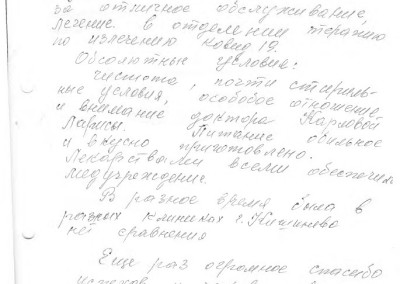 за отличное обслуживание,
лечение. в отделении терапию
по излечению ковид 19.
Обсолютные условие:
чистота, почти стириль-
ные условия, особое отношение
и внимание доктора Карловой
Ларисы. Питание обильное
и вкусно приготовлено.
Лекарствами всеми обеспечил
медучреждение.
В разное время была в
разных клиниках г. Кишинево
нет сравнения
Еще раз огромное спасибо